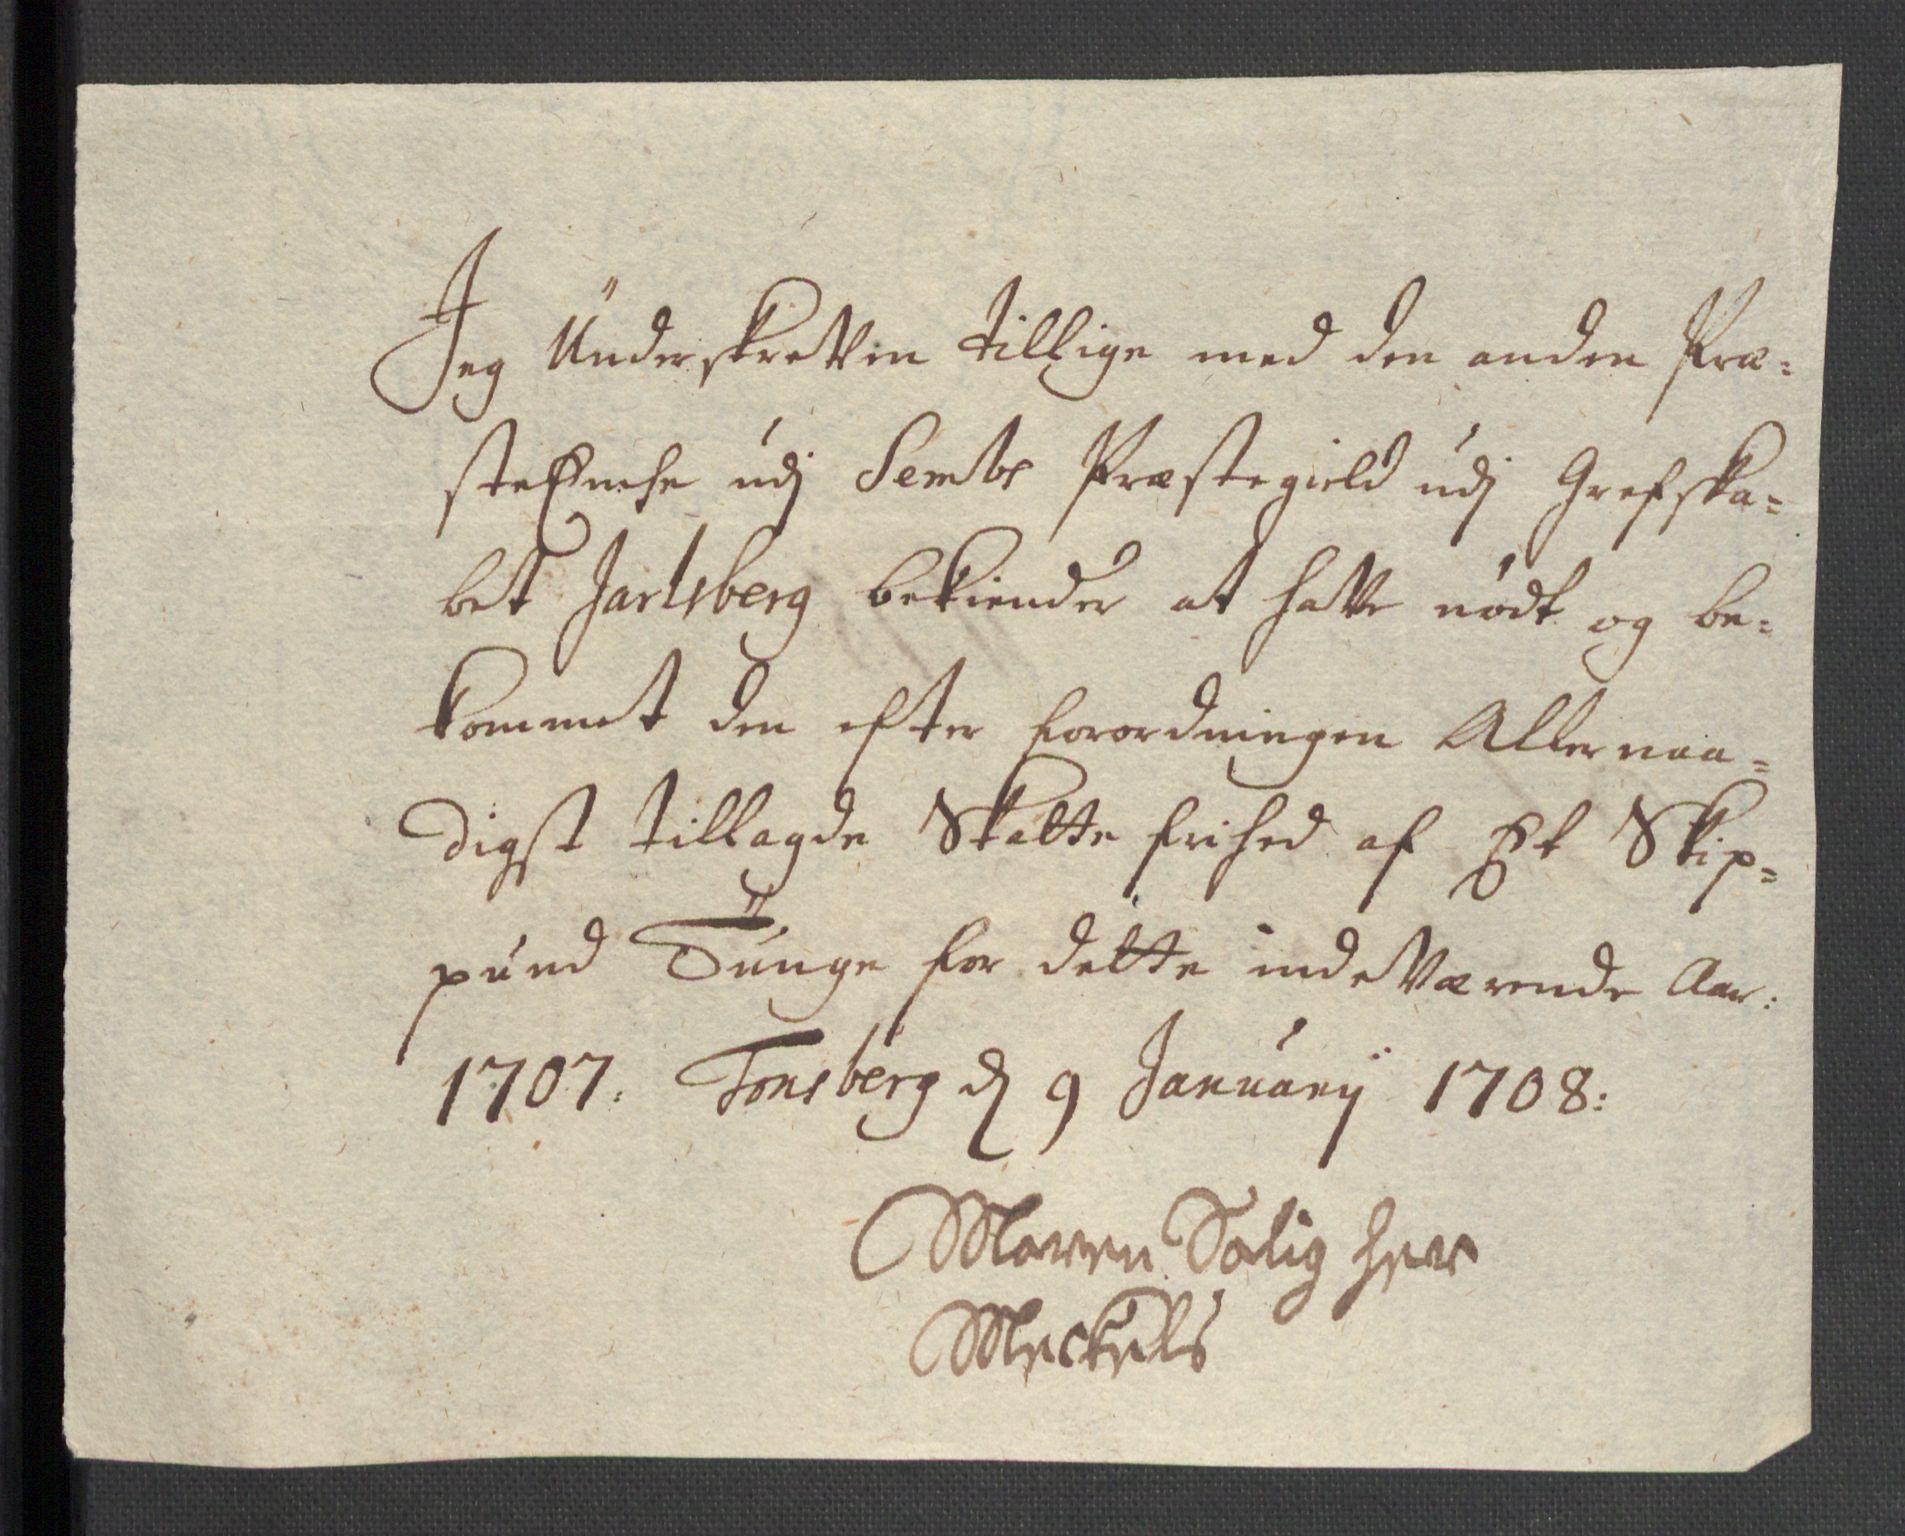 Jeg Underskreven tillige med den anden Præ-
ste Enche udj Sembs Præstegield udj Grefska-
bet Jarlsberg bekiender at have nødt og be-
kommet den efter forordningen Allernaa-
digst tillagde Skatte frihed af Et Skip-
pund Tunge for dette indeværende Aar:
1707. Tonsberg d 9 Januarij 1708:
Maren Salig her
Meckels